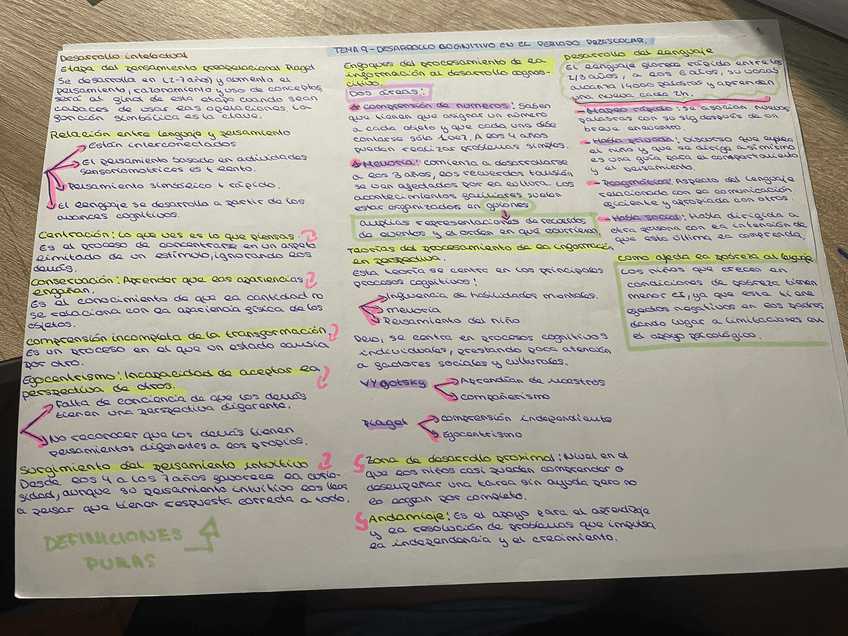 TEMA 9 - DESARROLLO COGNITIVO EN EL PERIODO PREESCOLAR.
Desarrollo intelectual
Etapa del pensamiento preoperacional Piaget
Se desarrolla en (2-7 años) y aumenta el
pensamiento, razonamiento y uso de conceptos
será al final de esta etapa cuando sean
capaces de usar las operaciones. La
función simbólica es la clave.
Relación entre lenguaje y pensamiento
Están interconectados
El pensamiento basado en actividades
sensoriomotrices es + lento.
Pensamiento simbólico + rápido.
El lenguaje se desarrolla a partir de los
avances cognitivos.
Centración: Lo que ves es lo que piensas.
Es el proceso de concentrarse en un aspeto
limitado de un estímulo, ignorando los
demás.
Conservación: Aprender que las apariencias
engañan.
Es el conocimiento de que la cantidad no
se relaciona con la apariencia física de los
objetos.
Comprensión incompleta de la transformación.
Es un proceso en el que un estado cambia
por otro.
Egocentrismo: Incapacidad de aceptar la
perspectiva de otros.
Falta de conciencia de que los demás
tienen una perspectiva diferente.
No reconocer que los demás tienen
pensamientos diferentes a los propios.
Surgimiento del pensamiento intuitivo
Desde los 4 a los 7 años favorece la curio-
sidad, aunque su pensamiento intuitivo los lleva
a pensar que tienen respuesta correcta a todo.
DEFINICIONES
PURAS
Enfoques del procesamiento de la
información al desarrollo cognos-
citivo
Dos áreas:
Comprensión de números: Saben
que tienen que asignar un número
a cada objeto y que cada uno debe
contarse sólo 1 vez. A los 4 años
pueden realizar problemas simples.
Memoria: comienza a desarrollarse
a los 3 años, los recuerdos también
se ven afectados por la cultura. Los
acontecimientos familiares suelen
estar organizados en guiones
Amplias representaciones de recuerdos
de eventos y el orden en que ocurrieron.
Teorías del procesamiento de la información
en perspectiva.
Esta teoría se centra en los principales
procesos cognitivos:
Influencia de habilidades mentales.
memoria
Pensamiento del niño
Pero, se centra en procesos cognitivos
individuales, prestando poca atención
a factores sociales y culturales.
Vygotsky
Aprendían de maestros
compañerismo
Piaget
Comprensión independiente
Egocentrismo
Zona de desarrollo proximal: Nivel en el
que los niños casi pueden comprender o
desempeñar una tarea sin ayuda pero no
lo logran por completo.
Andamiaje: Es el apoyo para el aprendizaje
y la resolución de problemas que impulsa
la independencia y el crecimiento.
Desarrollo del lenguaje
El lenguaje florece rápido entre los
2/3 años, a los 6 años, su vocab
alcanza 14000 palabras y aprenden
una nueva cada 2h.
Mapeo rápido: Se asocian nuevas
palabras con su sig después de un
breve encuentro.
Habla privada: Discurso que emplea
el niño y que se dirige a sí mismo
es una guía para el comportamiento
y el pensamiento.
Pragmática: Aspecto del lenguaje
relacionado con la comunicación
eficiente y apropiada con otros.
Habla social: Habla dirigida a
otra persona con la intención de
que esta última la comprenda.
Como afecta la pobreza al lenguaje
Los niños que crecen en
condiciones de pobreza tienen
menor CI, ya que esta tiene
efectos negativos en los padres
dando lugar a limitaciones en
el apoyo psicológico.